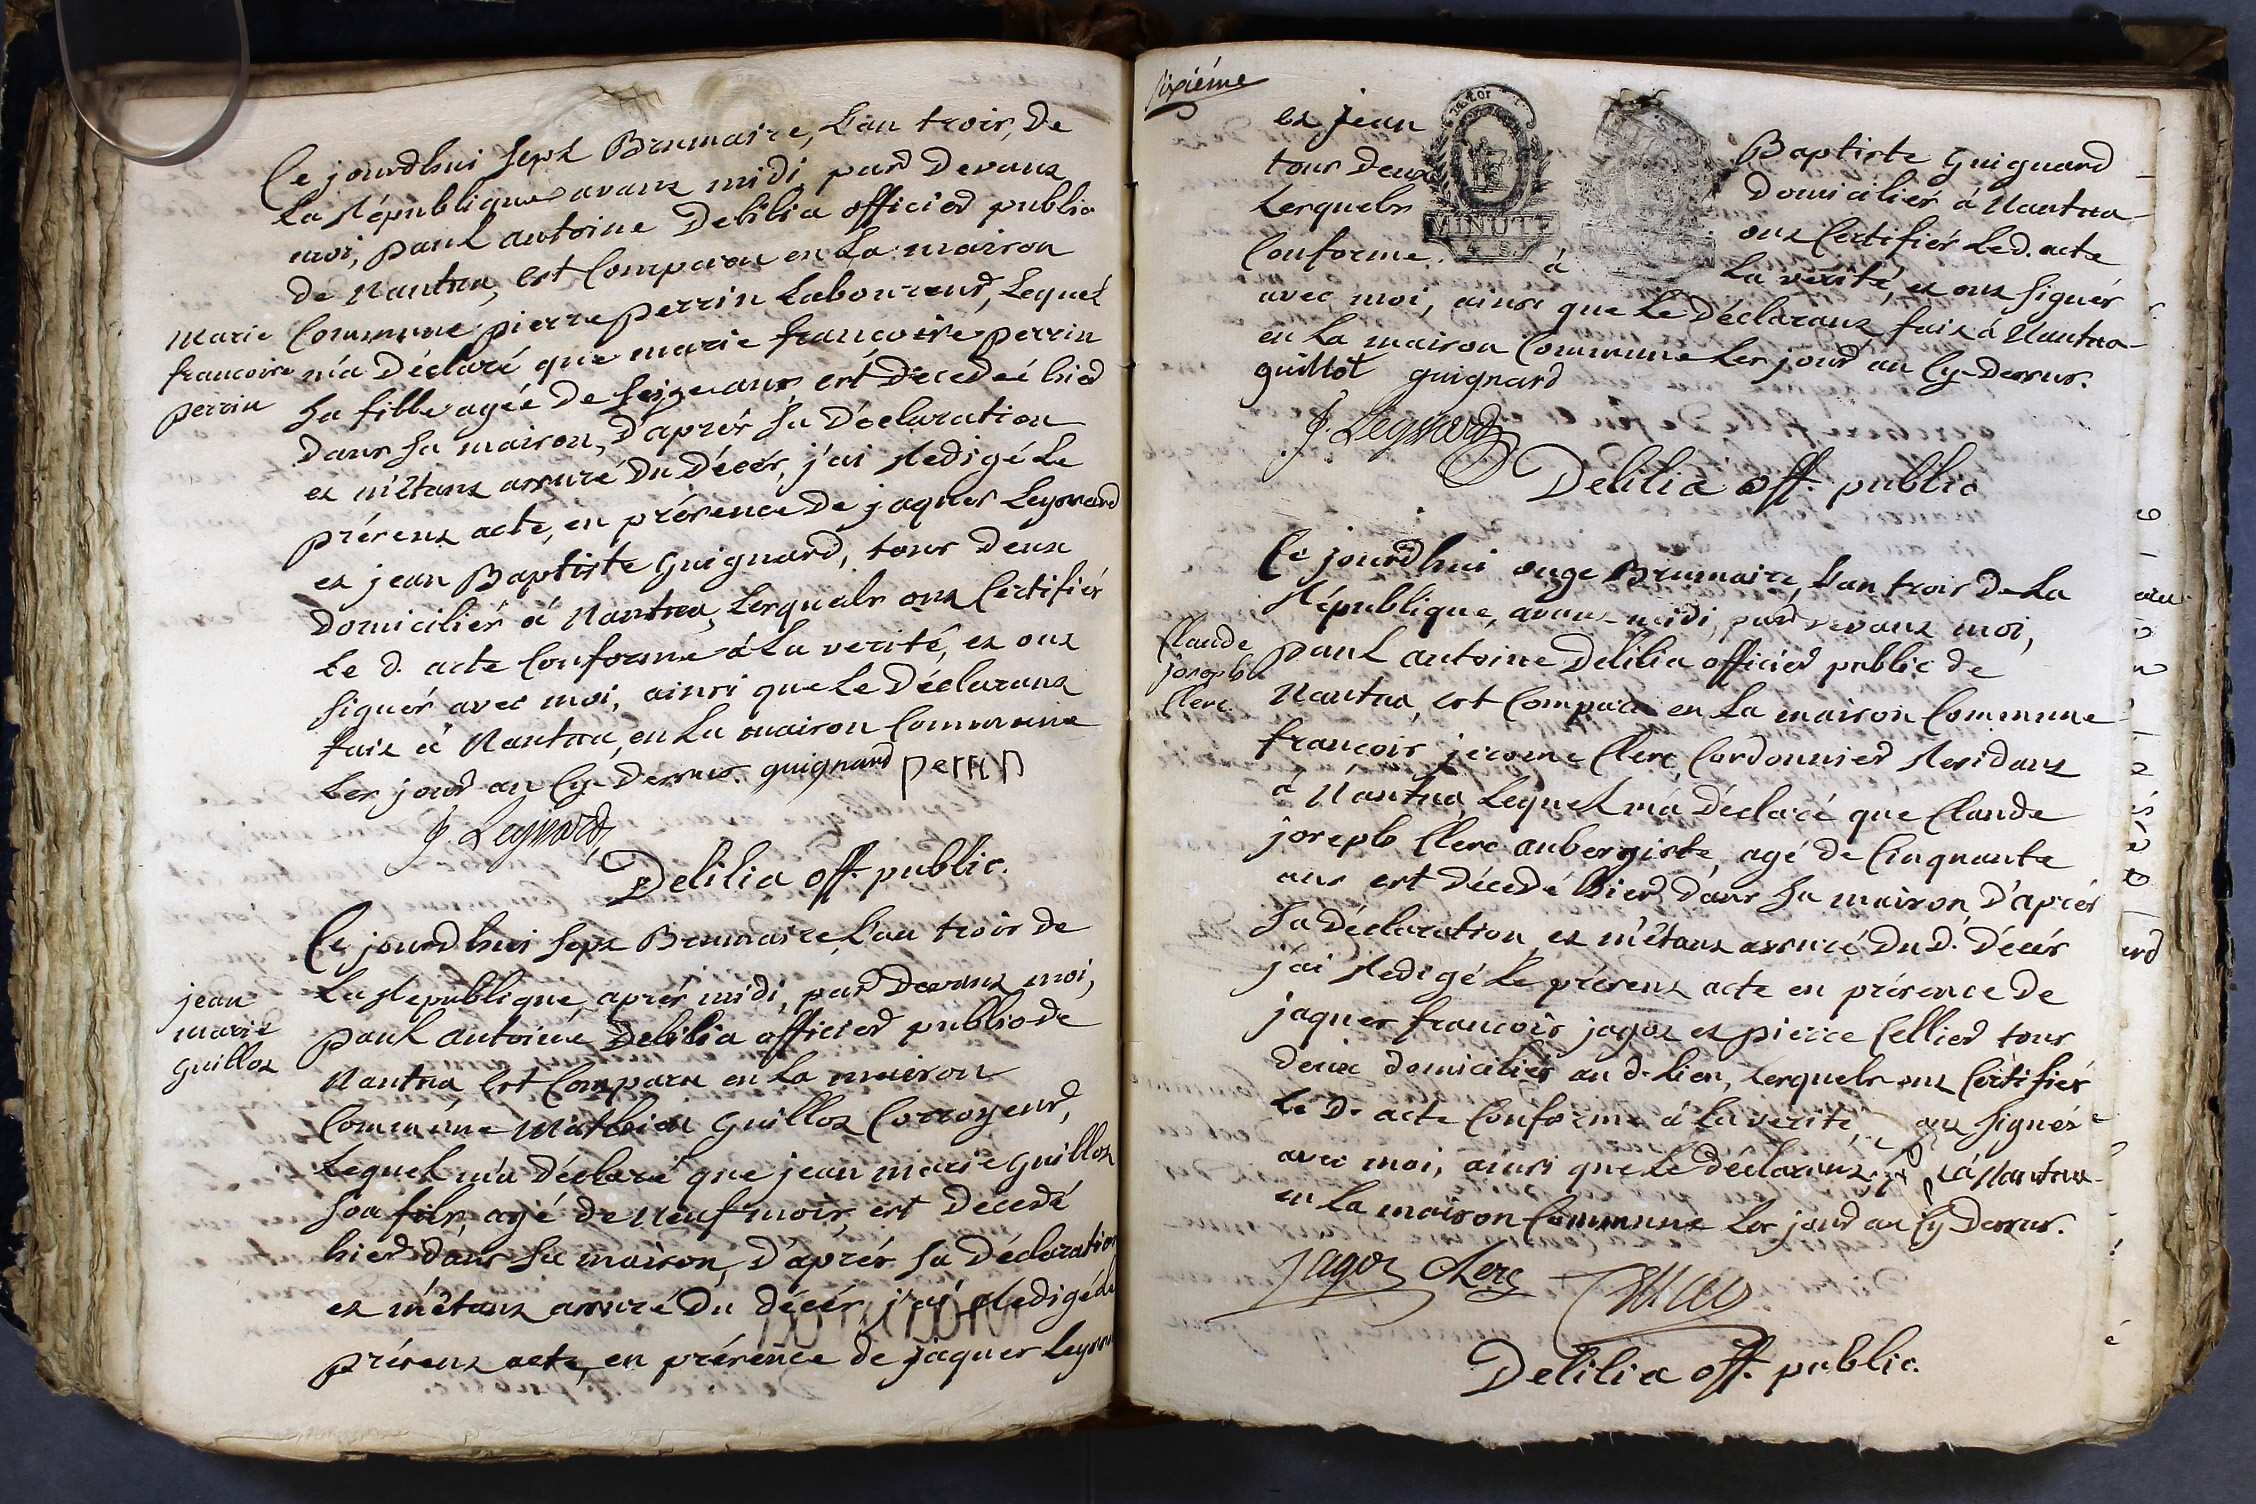 Ce jourdhui sept Brumaire, L'an trois, de
La République avant midi, pard Devant
moi, paul antoine Delilia officier public
de Nantua, est Comparu en La maison
Commune pierre perrin Laboureur, Lequel
m'a Déclaré que marie francoise perrin
sa fille agée De seize ans est Décedeé hier
Dans sa maison, D'aprés sa Déclaration
et m'étant assuré Du Décés, j'ai Redigé Le
présent acte, en présence De jaques Leyssard
et jean Baptiste Guignard, tous Deux
Domiciliés à Nantua, Lesquels ont Certifiés
Le d. acte Conforme à La verité, et ont
signés avec moi, ainsi que Le Déclarant
fait à Nantua, en La maison Commune
Les jour an Cy-Dessus. guignard perrin
J. Leyssard
Delilia off. public.
marie
francoise
perrin
Ce jourdhui sept Brumaire, L'an trois de
La Republique, aprés midi, par Devant moi,
paul antoine Delilia officier public de
Nantua, est Comparu en La maison
Commune Mathieu Guillot Corroyeur,
Lequel m'a Déclaré que jean marie Guillot
son fils, agé de Neuf mois, est Décedé
hier dans sa maison, D'aprés sa Déclaration
et m'étant assuré Du Décés, j'ai Redigé Le
présent acte, en présence de jaques Leyssard
jean
marie
Guillot
sixiéme
et jean Baptiste Guignard
tous Deux Domiciliés à Nantua
Lesquels ont Certifiés Le d. acte
Conforme à La verité, et ont signés
avec moi, ainsi que Le Déclarant, fait à Nantua
en La maison Commune Les jour an Cy-Dessus.
guillot guignard
J. Leyssard
Delilia off. public
MINUTE
Ce jourdhui onze Brumaire, L'an trois De La
République, avant-midi, pard devant moi,
paul antoine Delilia officier public de
Nantua, est Comparu en La maison Commune
francois jerome Clerc, Cordonnier Residant
à Nantua, Lequel m'a Déclaré que Claude
joseph Clerc aubergiste, agé de Cinquante
ans est Décedé hier Dans sa maison, D'aprés
sa Déclaration, et m'étant assuré Du d. Décés
j'ai Redigé Le présent acte en présence De
jaques francois jagot et pierre Cellier tous
deux domiciliés au d. Lieu, Lesquels ont Certifiés
Le d. acte Conforme à La verité, ont signés
avec moi, ainsi que Le Déclarant, à Nantua
en La maison Commune Les jour an Cy Dessus.
Jagot Clerc
Delilia off. public.
Claude
joseph
Clerc